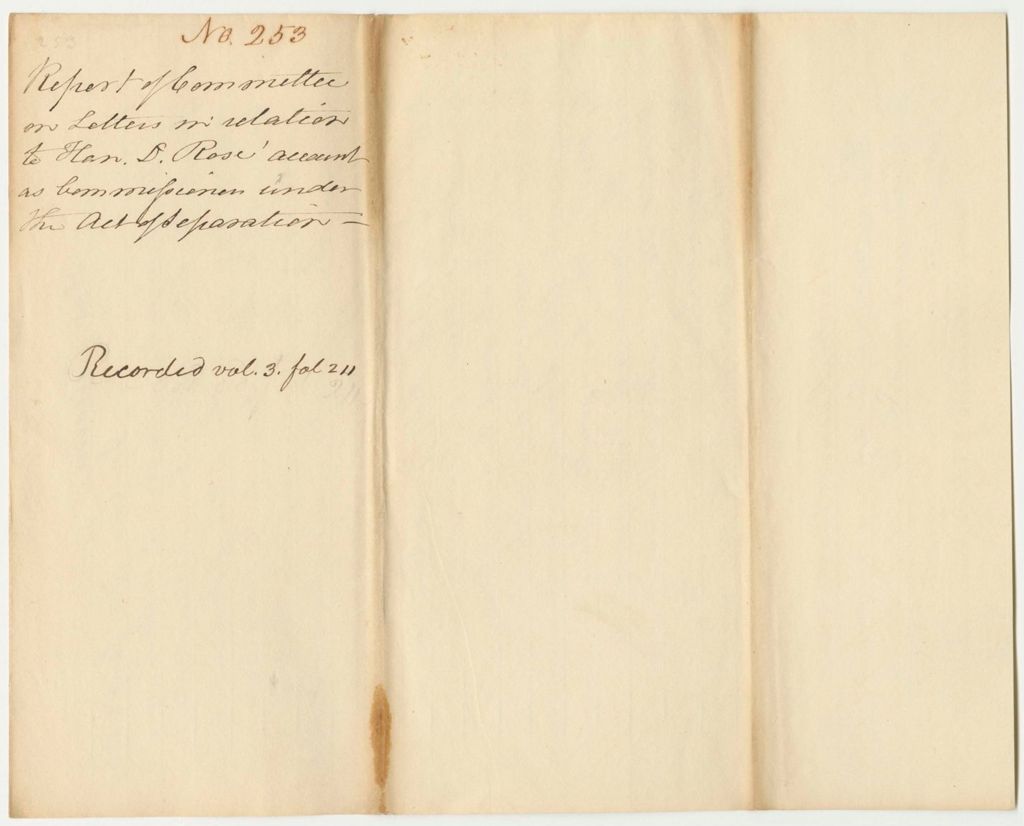 No. 253
Report of Committee
on Letters in relation
to Hon. D. Rose' account
as Commissioner under
the Act of Separation =
Recorded vol. 3. fol 211